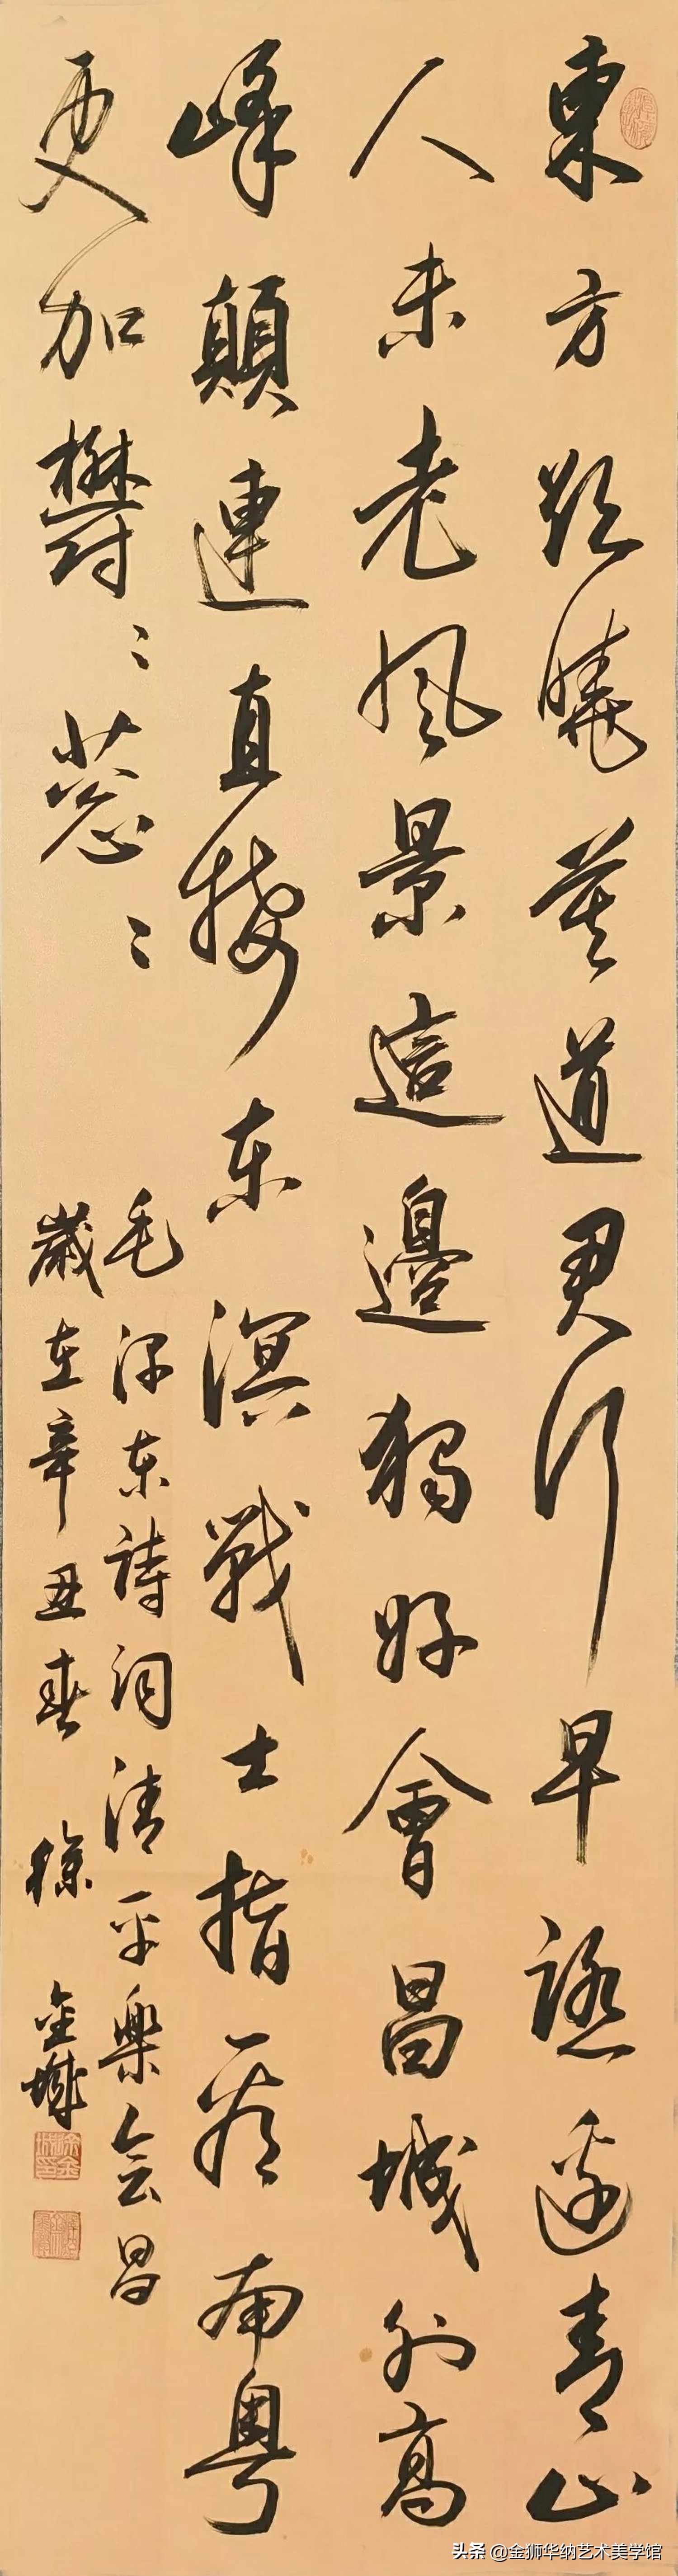 東方欲曉莫道君行早踏遍青山
人未老風景這邊獨好會昌城外高
峰顛連直接东溟戰士指看南粤
更加鬱〻葱〻
毛泽东詩詞清平樂会昌
歲在辛丑春 徐金城
头条 @金狮华纳艺术美学馆